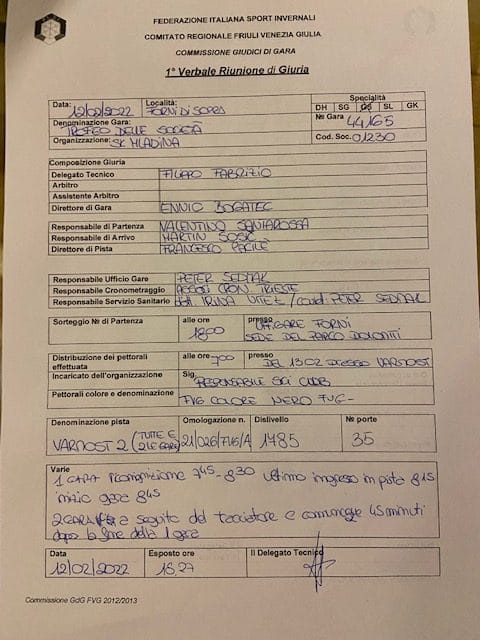 FEDERAZIONE ITALIANA SPORT INVERNALI
COMITATO REGIONALE FRIULI VENEZIA GIULIA
COMMISSIONE GIUDICI DI GARA
1° Verbale Riunione di Giuria
Data: 12/02/2022 Località: FORNI DI SOPRA Specialità
DH SG GS SL GK
Denominazione Gara: TROFEO DELLE SOCIETÀ № Gara 44165
Organizzazione: SK MLADINA Cod. Soc. 01230
Composizione Giuria
Delegato Tecnico FILIPPO FABRIZIO
Arbitro
Assistente Arbitro
Direttore di Gara ENNIO BOGATEC
Responsabile di Partenza VALENTINO SANTAROSSA
Responsabile di Arrivo MARTIN SOSIČ
Direttore di Pista FRANCESCO PECILE
Responsabile Ufficio Gare PETER SEDMAK
Responsabile Cronometraggio CRON. TRIESTE
Responsabile Servizio Sanitario dott. IRINA / PETER SEDMAK
Sorteggio № di Partenza alle ore 1800 presso UFF. GARE FORNI
SEDE DEL PARCO DOLOMITI
Distribuzione dei pettorali effettuata alle ore 700 presso DEL 13.02 PRESSO VARMOST
Incaricato dell'organizzazione Sig. RESPONSABILE SCI CLUB
Pettorali colore e denominazione FVG COLORE NERO FVG-
Denominazione pista Omologazione n. Dislivello № porte
VARMOST 2 (TUTTE E 2 LE GARE) 21/026/FVG/A 1485 35
Varie
1 GARA ricognizione 7 45 - 8 30 ultimo ingresso in pista 8 15
inizio gara 8 45
2 GARA a seguito del tracciatore e comunque 45 minuti
dopo la fine della 1 gara
Data Esposto ore Il Delegato Tecnico
12/02/2022 18,27
Commissione GdG FVG 2012/2013